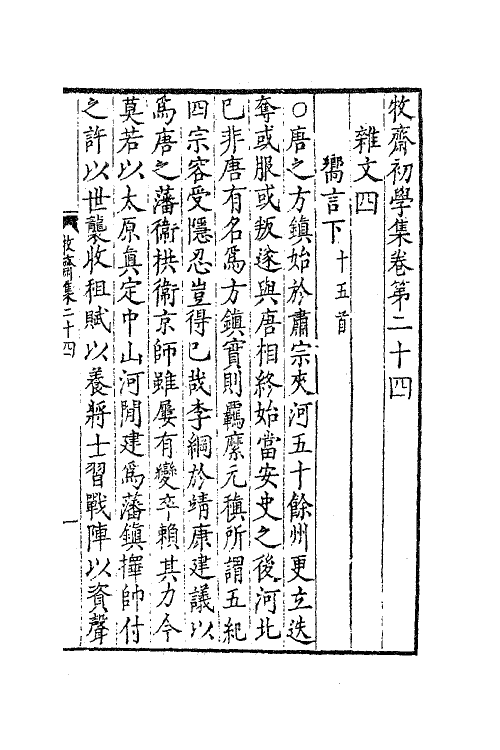 牧齋初學集卷第二十四
雜文四
嚮言下十五首
○唐之方鎮始於肅宗夾河五十餘州更立迭
奪或服或叛遂與唐相終始當安史之後河北
已非唐有名爲方鎮實則羈縻元稹所謂五紀
四宗容受隱忍豈得已哉李綱於靖康建議以
爲唐之藩衞拱衞京師雖屢有變卒賴其力今
莫若以太原真定中山河閒建爲藩鎮擇帥付
之許以世襲收租賦以養將士習戰陣以資聲
牧齋集二十四
一